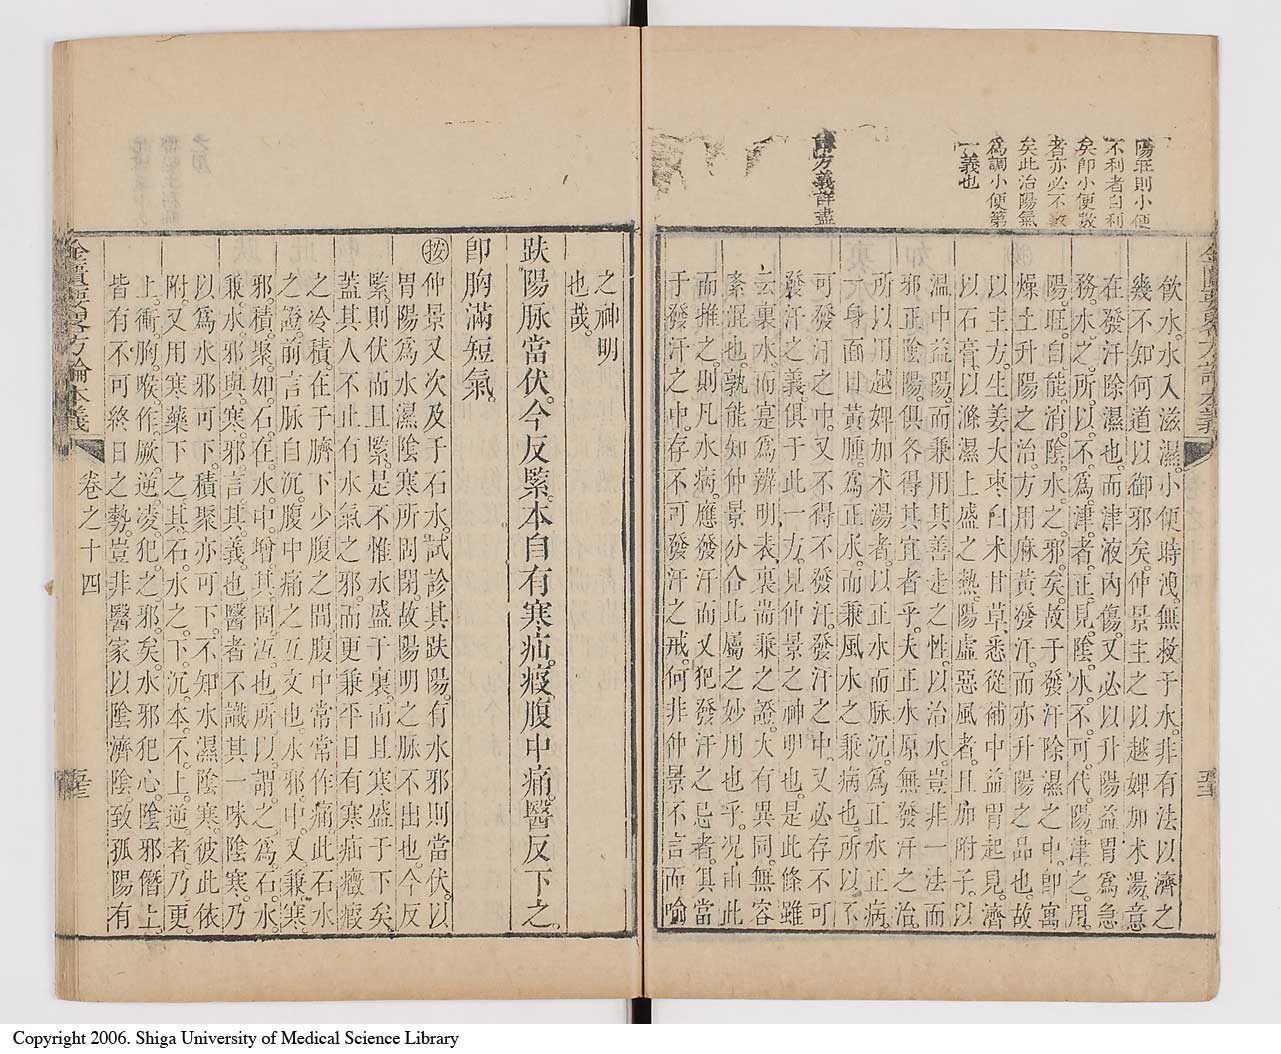 陽旺則小便
不利者自利
矣卽小便數
者亦必不
矣此治陽氣
爲調小便第
一義也
方義詳盡
飲水水入滋濕小便時洩無救于水非有法以濟之
幾不知何道以御邪矣仲景主之以越婢加术湯意
在發汗除濕也而津液內傷又必以升陽益胃爲急
務水之所以不爲津者正見陰水不可代陽津之用
陽旺自能消陰水之邪矣故于發汗除濕之中卽寓
燥土升陽之治方用麻黃發汗而亦升陽之品也故
以主方生姜大枣白术甘草悉從補中益胃起見濟
以石膏以滌濕上盛之熱陽虛惡風者且加附子以
温中益陽而兼用其善走之性以治水豈非一法而
邪正陰陽俱各得其宜者乎夫正水原無發汗之治
所以用越婢加术湯者以正水而脉沉爲正水正病
一身面目黃腫爲正水而兼風水之兼病也所以不
可發汗之中又不得不發汗發汗之中又必存不可
發汗之義俱于此一方見仲景之神明也是此條雖
云裏水而寔爲辨明表裏耑兼之證大有異同無容
紊混也孰能知仲景分合比屬之妙用也乎况由此
而推之則凡水病應發汗而又犯發汗之忌者俱當
于發汗之中存不可發汗之戒何非仲景不言而喻
金匱要畧方論本義
卷之十四
之神明
也哉
趺陽脉當伏今反緊本自有寒疝瘕腹中痛醫反下之
卽胸滿短氣
按仲景又次及于石水試診其趺陽有水邪則當伏以
胃陽爲水濕陰寒所固閉故陽明之脉不出也今反
緊則伏而且緊是不惟水盛于裏而且寒盛于下矣
蓋其人不止有水氣之邪而更兼平日有寒疝癥瘕
之冷積在于臍下少腹之間腹中常常作痛此石水
之證前言脉自沉腹中痛之互文也水邪中又兼寒
邪積聚如石在水中增其固沍也所以謂之爲石水
兼水邪與寒邪言其義也醫者不識其一味陰寒乃
以爲水邪可下積聚亦可下不知水濕陰寒彼此依
附又用寒藥下之其石水之下沉本不上逆者乃更
上衝胸喉作厥逆凌犯之邪矣水邪犯心陰邪僭上
皆有不可終日之勢豈非醫家以陰濟陰致孤陽有
金匱要畧方論本義
卷之十四